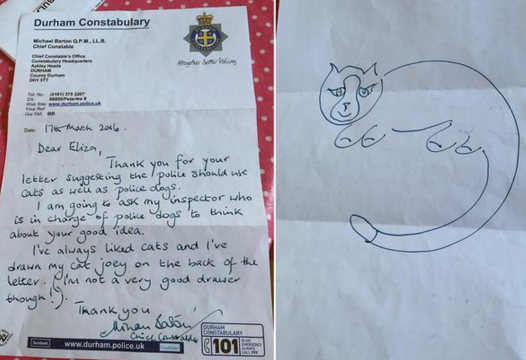 Durham Constabulary
Michael Barton Q.P.M., LL.B.
Chief Constable
Altogether Better Policing
Chief Constable's Office
Constabulary Headquarters
Aykley Heads
DURHAM
County Durham
DH1 5TT
Tel. No.: (0191) 375 2207
DX:
Web Site: www.durham.police.uk
Your Ref:
Our Ref: MB
Date: 17th March 2016.
Dear Eliza,
Thank you for your
letter suggesting the police should use
cats as well as police dogs.
I am going to ask my inspector who
is in charge of police dogs to think
about your good idea.
I've always liked cats and I've
drawn my cat joey on the back of the
letter. (I'm not a very good drawer
though!).
Thank you
Chief Constable
facebook
www.durham.police.uk
DURHAM
CONSTABULARY
101
IN AN
EMERGENCY
ALWAYS
CALL 999